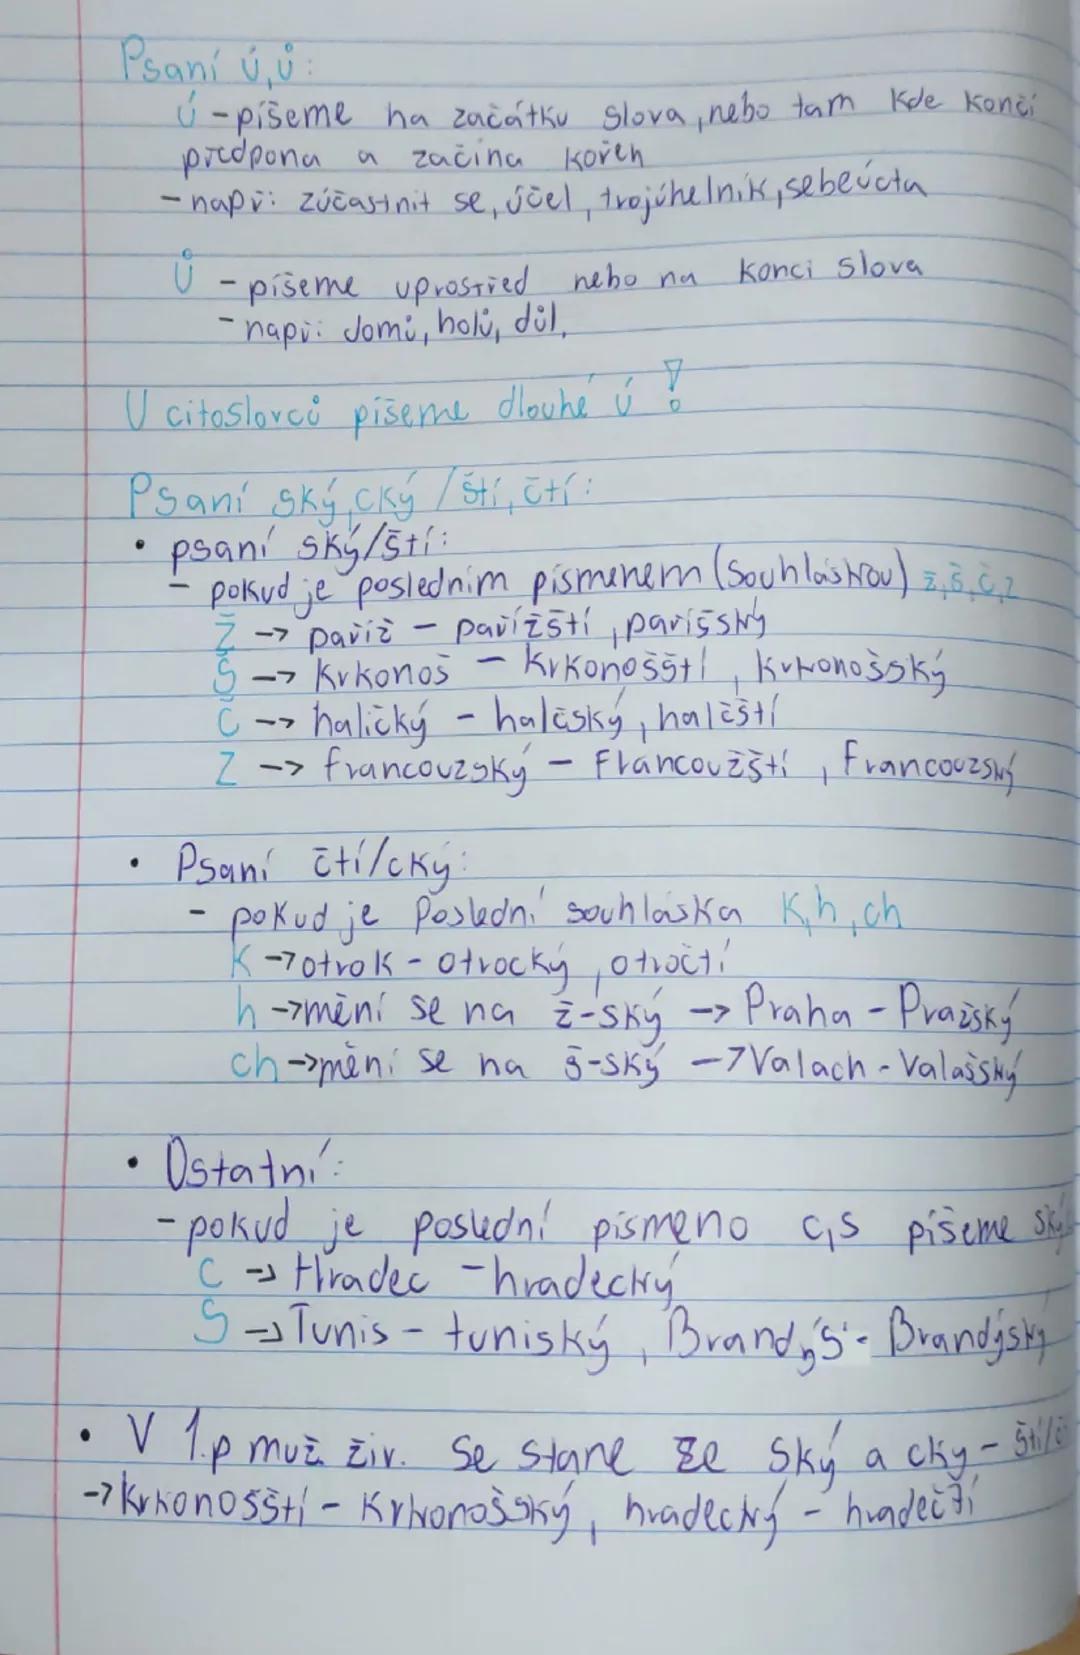 Psaní ú,ů:
ú - píšeme na začátku slova, nebo tam kde končí
předpona a začíná kořen
- např: zúčastnit se, účel, trojúhelník, sebeúcta
ů - píšeme uprostřed nebo na konci slova
- např: domů, holů, důl,
U citoslovců píšeme dlouhé ú!
Psaní ský,cký / ští, čtí:
• psaní ský/ští:
- pokud je posledním písmenem (souhláskou) ž,š,č,z
Ž → paříž - pařížští, parišský
Š → Krkonoš - Krkonošští, Krkonošský
Č → haličký - halčský, halčští
Z → francouzský - Francoužští, Francouzský
• Psaní čtí/cký:
- pokud je poslední souhláska K,h,ch
K → otrok - otrocký, otročtí
h → mění se na ž-ský → Praha - Pražský
ch → mění se na š-ský → Valach - Valašský
• Ostatní:
- pokud je poslední písmeno c,s píšeme ský
C → Hradec - hradecký
S → Tunis - tuniský, Brandýs - Brandýský
• V 1.p muž živ. se stane že Ský a cky - ští/
→ Krkonošští - Krkonošský, hradecký - hradečtí